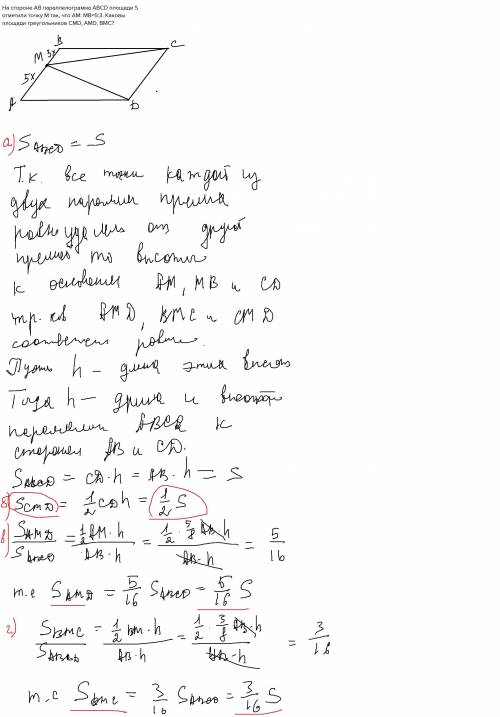 На стороне AB параллелограмма ABCD площади S
отметили точку M так, что AM: MB=5:3. Каковы
площади треугольников CMD, AMD, BMC?
B
C
3x
M
5x
A
D
а) S_ABCD = S
Т.к. все точки каждой из
двух параллел прямых
равноудалены от другой
прямой то высоты
к основаниям AM, MB и CD
тр-ков AMD, BMC и CMD
соответств равны.
Пусть h – длина этих высот
Тогда h – длина и высоты
параллел ABCD к
сторонам AB и CD.
S_ABCD = CD · h = AB · h = S
б) S_CMD = 1/2 CD h = 1/2 S
в) S_AMD / S_ABCD = (1/2 AM · h) / (AB · h) = (1/2 · 5/8 AB · h) / (AB · h) = 5/16
т.е S_AMD = 5/16 S_ABCD = 5/16 S
г) S_BMC / S_ABCD = (1/2 BM · h) / (AB · h) = (1/2 · 3/8 AB · h) / (AB · h) = 3/16
т.е S_BMC = 3/16 S_ABCD = 3/16 S